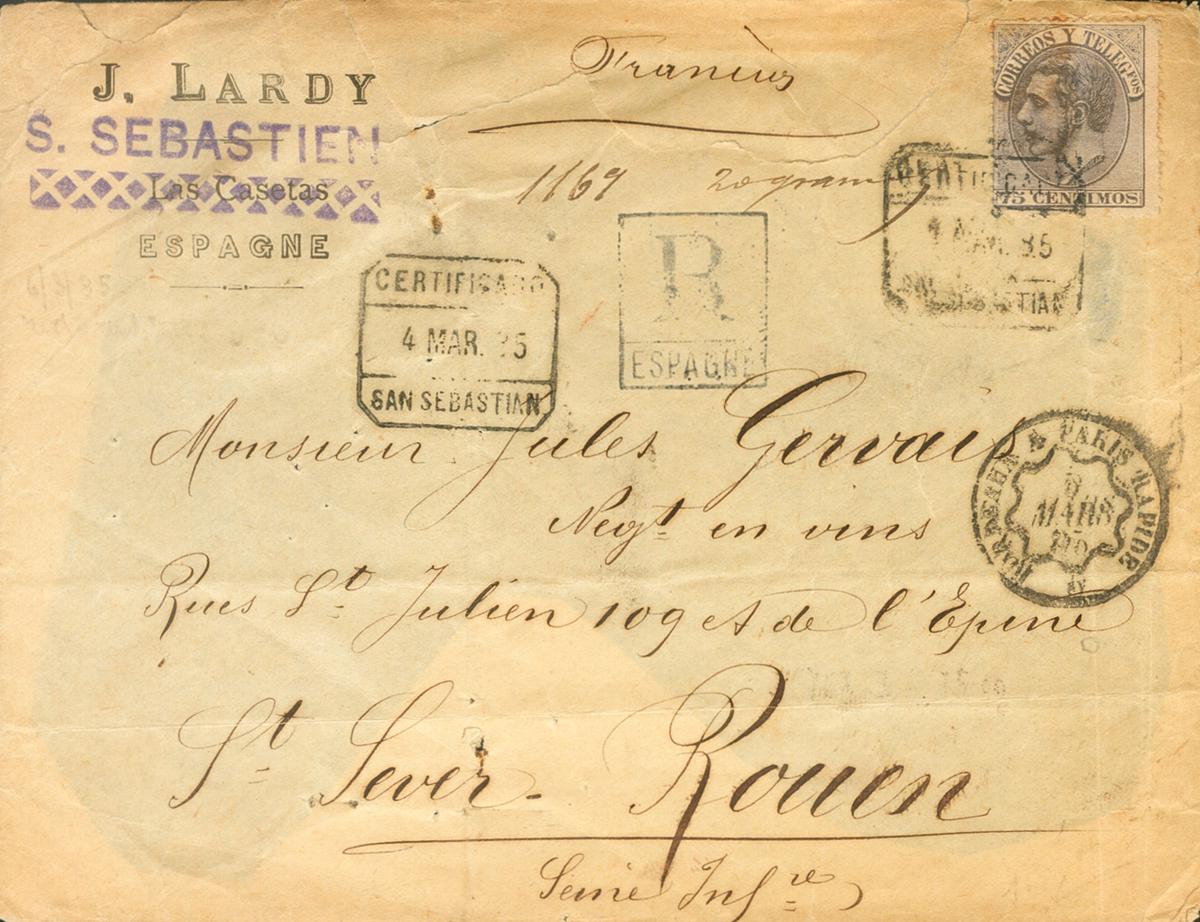 J. LARDY
S. SEBASTIEN
Las Casetas
ESPAGNE
1169 20 gram
CORREOS Y TELEGFOS
75 CENTIMOS
CERTIFICADO
4 MAR. 85
SAN SEBASTIAN
R
ESPAGNE
CERTIFICADO
4 MAR. 85
SAN SEBASTIAN
BORDEAUX A PARIS RAPIDE
MARS
Monsieur Jules Gervais
Negt en vins
Rues St Julien 109 et de l'Epine
St Sever - Rouen
Seine Infre